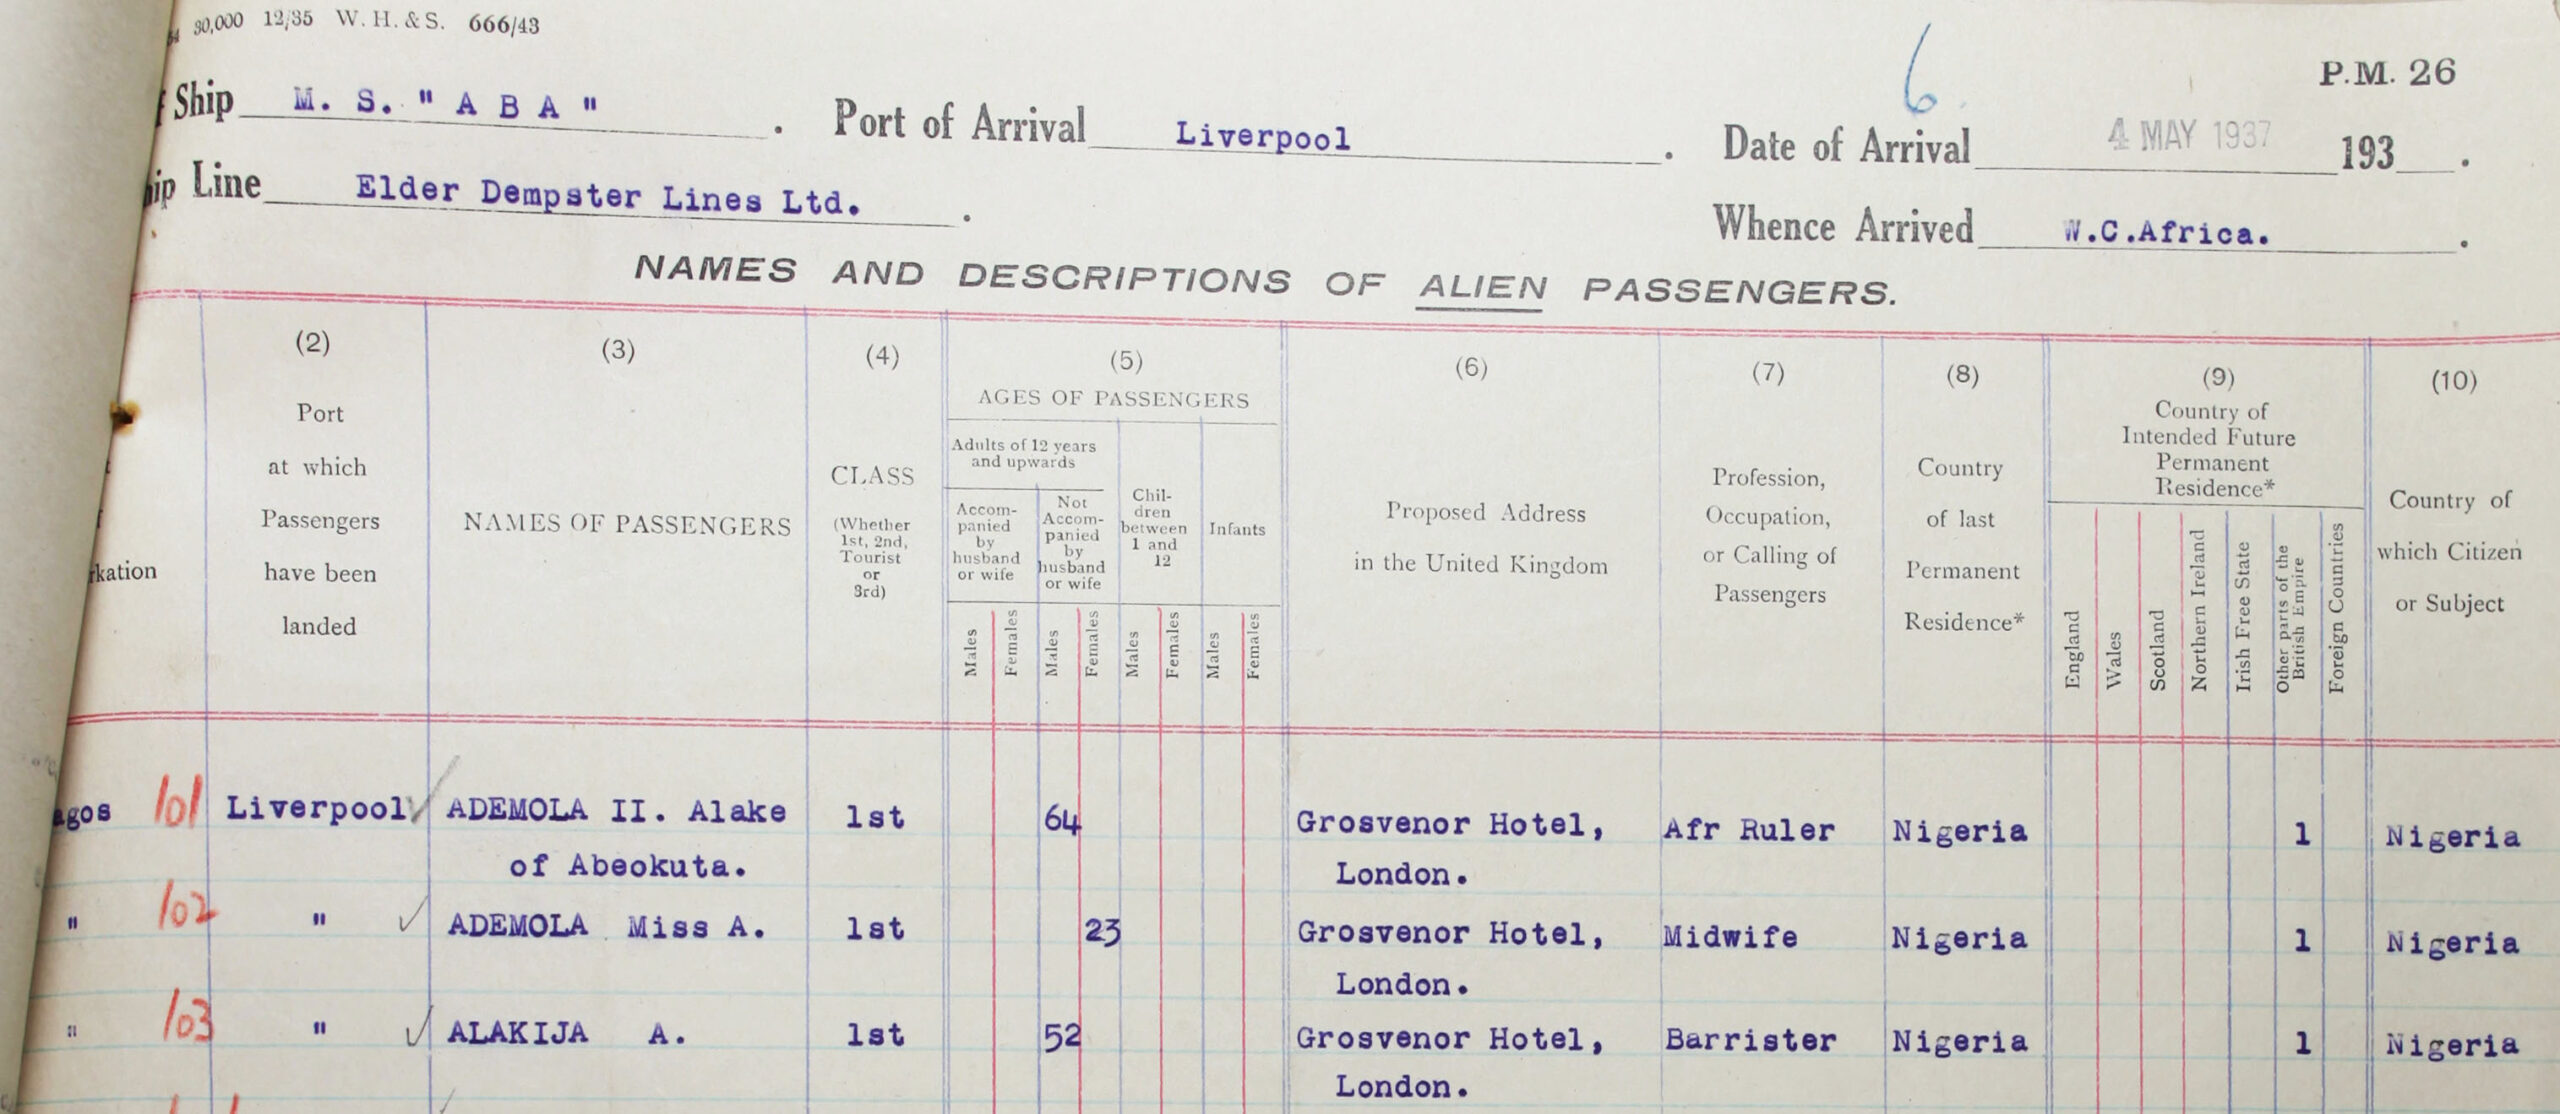 30,000 12/35 W. H. & S. 666/43
6
P.M. 26
Ship M. S. "ABA" . Port of Arrival Liverpool . Date of Arrival 4 MAY 1937 193 .
Line Elder Dempster Lines Ltd. . Whence Arrived W.C.Africa. .
NAMES AND DESCRIPTIONS OF ALIEN PASSENGERS.
(2)
Port
at which
Passengers
have been
landed
(3)
NAMES OF PASSENGERS
(4)
CLASS
(Whether
1st, 2nd,
Tourist
or
3rd)
(5)
AGES OF PASSENGERS
Adults of 12 years
and upwards
Accom-
panied
by
husband
or wife
Not
Accom-
panied
by
husband
or wife
Chil-
dren
between
1 and
12
Infants
Males
Females
Males
Females
Males
Females
Males
Females
(6)
Proposed Address
in the United Kingdom
(7)
Profession,
Occupation,
or Calling of
Passengers
(8)
Country
of last
Permanent
Residence*
(9)
Country of
Intended Future
Permanent
Residence*
England
Wales
Scotland
Northern Ireland
Irish Free State
Other parts of the
British Empire
Foreign Countries
(10)
Country of
which Citizen
or Subject
kation
agos 101 Liverpool ADEMOLA II. Alake 1st 64 Grosvenor Hotel, Afr Ruler Nigeria 1 Nigeria
of Abeokuta. London.
" 102 " ADEMOLA Miss A. 1st 23 Grosvenor Hotel, Midwife Nigeria 1 Nigeria
London.
" 103 " ALAKIJA A. 1st 52 Grosvenor Hotel, Barrister Nigeria 1 Nigeria
London.